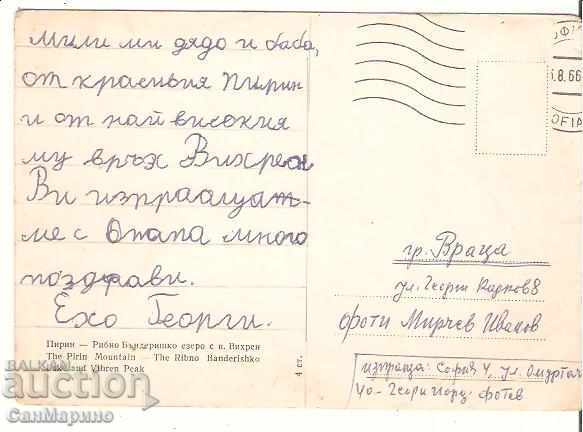 мили ми дядо и баба,
от красивия Пирин
и от най високия
му връх Вихрен
Ви изпращат-
ме с папа много
поздрави.
Ехо Георги.
Пирин — Рибно Бъндеришко езеро с в. Вихрен
The Pirin Mountain — The Ribno Banderishko
Lake and Vihren Peak
4 ст.
8.66
OFIA
гр. Враца
ул. Георги 8
фоти Мирчев Иванов
изпраща: София 4, ул. Омуртаг
40 - Георги фотев
БАЛКАН
auction
СанМарино